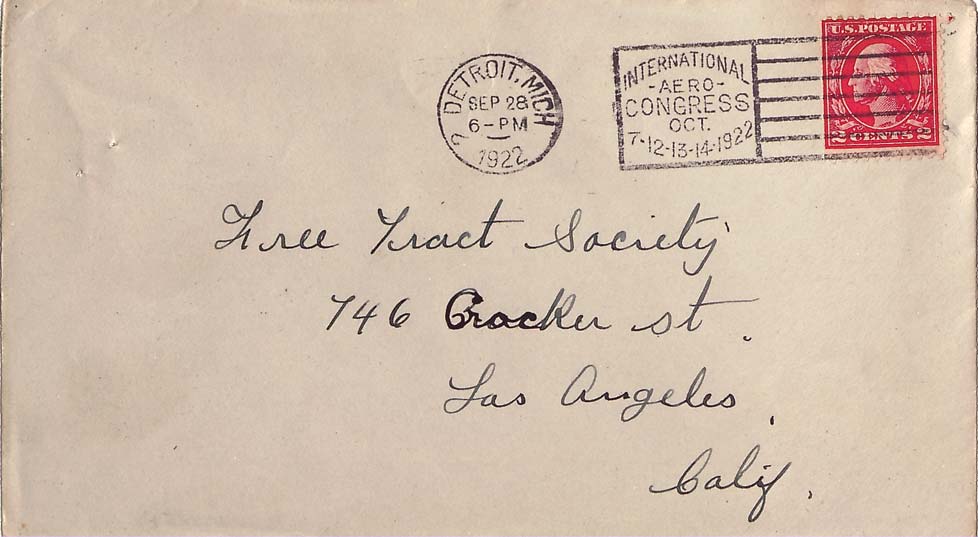 DETROIT, MICH
SEP 28
6-PM
1922
2
INTERNATIONAL
-AERO-
CONGRESS
OCT.
7-12-13-14-1922
U.S. POSTAGE
2 CENTS 2
Free Tract Society
746 Crocker st.
Los Angeles,
Calif.